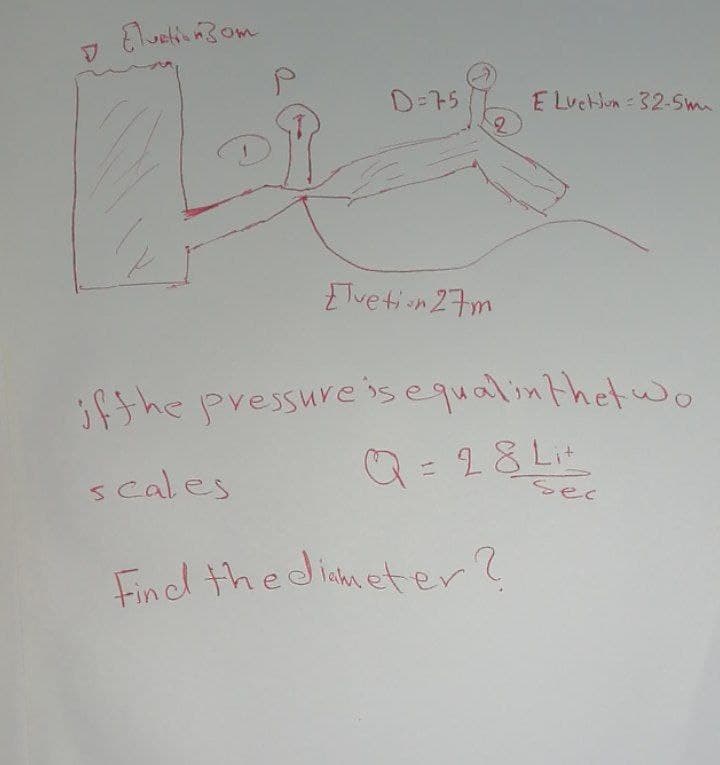 Elvetion 30m
P
D=75
ELvetion = 32-5m
1
2
Elvetion 27m
if the pressure is equal in the two
scales Q = 28 Lit/Sec
Find the diameter?